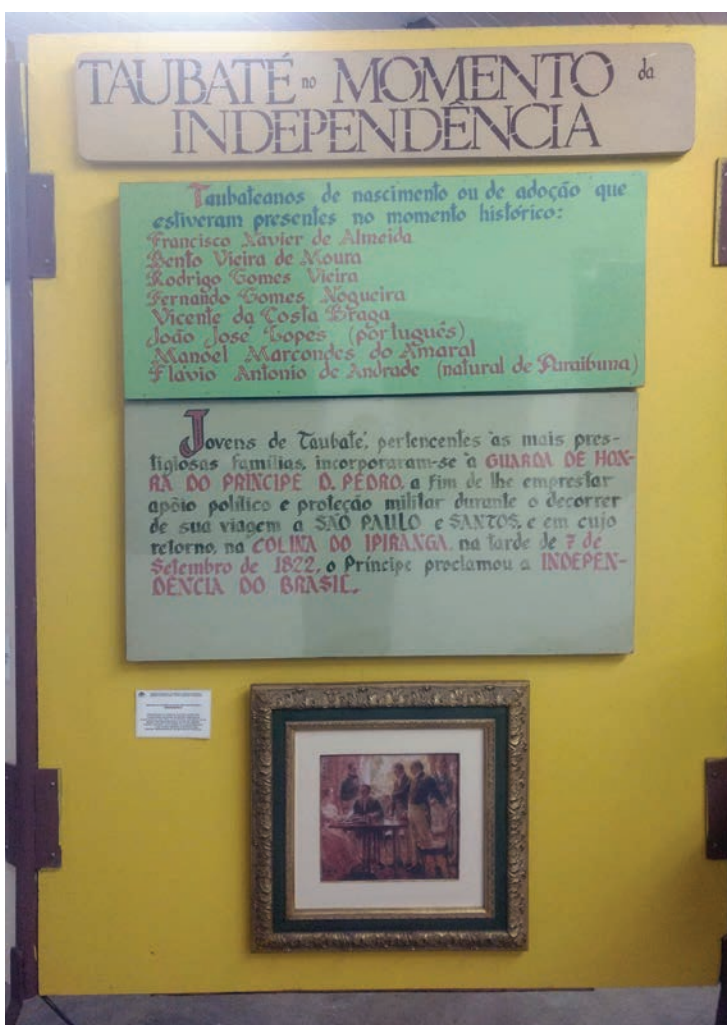 TAUBATÉ no MOMENTO da
INDEPENDÊNCIA
Taubateanos de nascimento ou de adoção que
estiveram presentes no momento histórico:
Francisco Xavier de Almeida
Bento Vieira de Moura
Rodrigo Gomes Vieira
Fernando Gomes Nogueira
Vicente da Costa Braga
João José Lopes (português)
Manoel Marcondes do Amaral
Flávio Antonio de Andrade (natural de Paraibuna)
Jovens de Taubaté, pertencentes às mais pres-
tigiosas famílias, incorporaram-se à GUARDA DE HON-
RA DO PRÍNCIPE D. PEDRO, a fim de lhe emprestar
apôio político e proteção militar durante o decorrer
de sua viagem a SÃO PAULO e SANTOS, e em cujo
retorno, na COLINA DO IPIRANGA, na tarde de 7 de
Setembro de 1822, o Príncipe proclamou a INDEPEN-
DÊNCIA DO BRASIL.